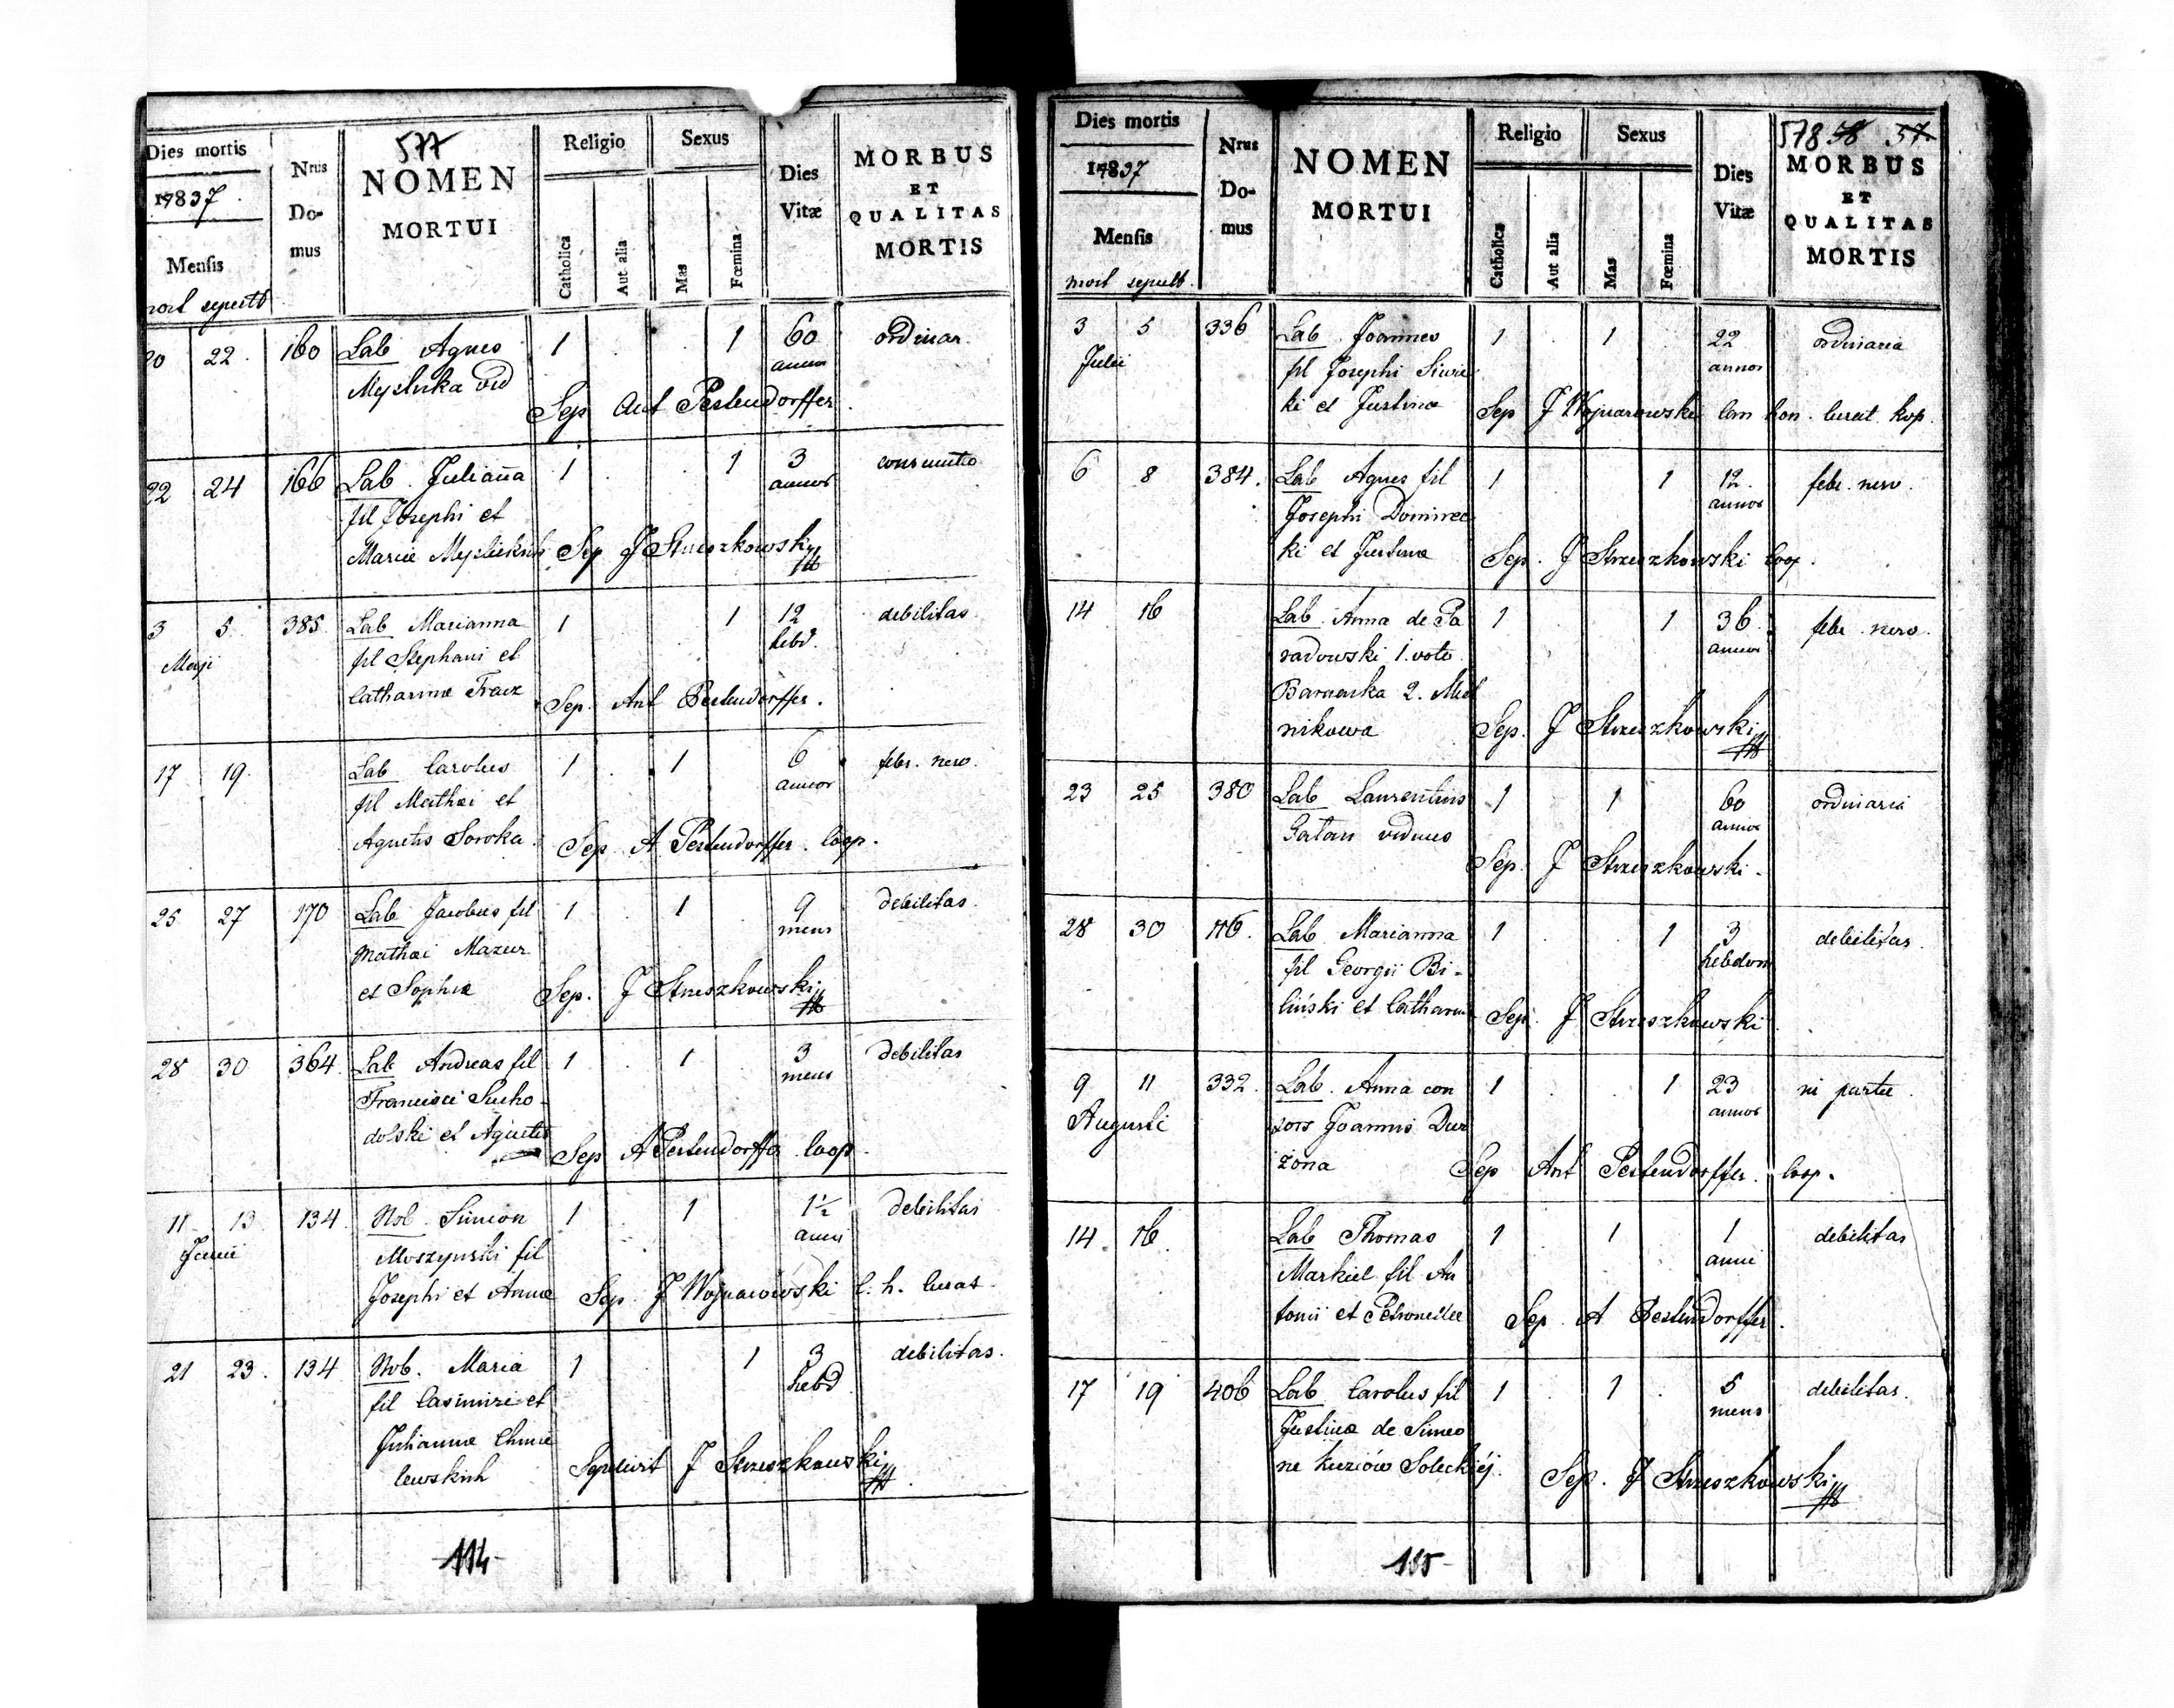 577
Dies mortis
Nrus
Do-
mus
NOMEN
MORTUI
Religio
Sexus
Dies
Vitæ
MORBUS
ET
QUALITAS
MORTIS
1837
Mensis
Catholica
Aut alia
Mas
Fœmina
mort sepult
20 22 160 Lab Agnes 1 1 60 ordinar
annor
vid
Sep Ant Pestendorffer
22 24 166 Lab. Julianna 1 1 3 consumtio
fil Josephi et annor
Mariæ Sep J Strzeszkowski
3 5 385 Lab Marianna 1 1 12 debilitas
Maji fil Stephani et hebd.
Catharinæ Sep. Ant Pestendorffer.
17 19 Lab Carolus 1 1 6 febr. nerv.
fil Mathæi et annor
Agnetis Soroka Sep A Pestendorffer. Coop.
25 27 170 Lab Jacobus fil 1 1 9 debilitas
Mathæi Mazur mens
et Sophiæ Sep. J Strzeszkowski
28 30 364 Lab Andreas fil 1 1 3 debilitas
Francisci Sucho- mens
dolski et Agnetis
Sep A Pestendorffer Coop
11 13 134 Nob. Simeon 1 1 1½ debilitas
Junii Moszynski fil anni
Josephi et Annæ Sep. J Wojnarowski C. h. Curat
21 23. 134 Nob. Maria 1 1 3 debilitas.
fil Casimiri et hebd
Juliannæ Chmie
lewskich Sepelivit J Strzeszkowski
114
Dies mortis
Nrus
Do-
mus
NOMEN
MORTUI
Religio
Sexus
Dies
Vitæ
578 58 57
MORBUS
ET
QUALITAS
MORTIS
1837
Mensis
Catholica
Aut alia
Mas
Fœmina
mort sepult.
3 5 336 Lab. Joannes 1 1 22 ordinaria
Julii fil Josephi annor
ki et Justinæ Sep J Wojnarowski Can hon. Curat kop.
6 8 384. Lab Agnes fil 1 1 12. febr. nerv.
Josephi annor
ki et Justinæ Sep. J Strzeszkowski Coop.
14 16 Lab. Anna de Pa 1 1 36 febr. nerv.
radowski 1. voto annor
2.
nikowa Sep. J Strzeszkowski
23 25 380 Lab Laurentius 1 1 60 ordinaria
viduus annor
Sep. J Strzeszkowski.
28 30 116. Lab. Marianna 1 1 3 debilitas.
fil Georgii Bi- hebdom
liński et Cathar Sep. J Strzeszkowski
9 11 332. Lab. Anna con 1 1 23 in partu.
Augusti sors Joannis Du annor
żona Sep Ant Pestendorffer. Coop.
14. 16. Lab Thomas 1 1 1 debilitas
Markiel fil An anni
tonii et Petronellæ Sep. A Pestendorffer.
17 19 406 Lab Carolus fil 1 1 5 debilitas.
Justinæ de Simeo mens
ne Kuziów Soleckiéj. Sep. J Strzeszkowski
115